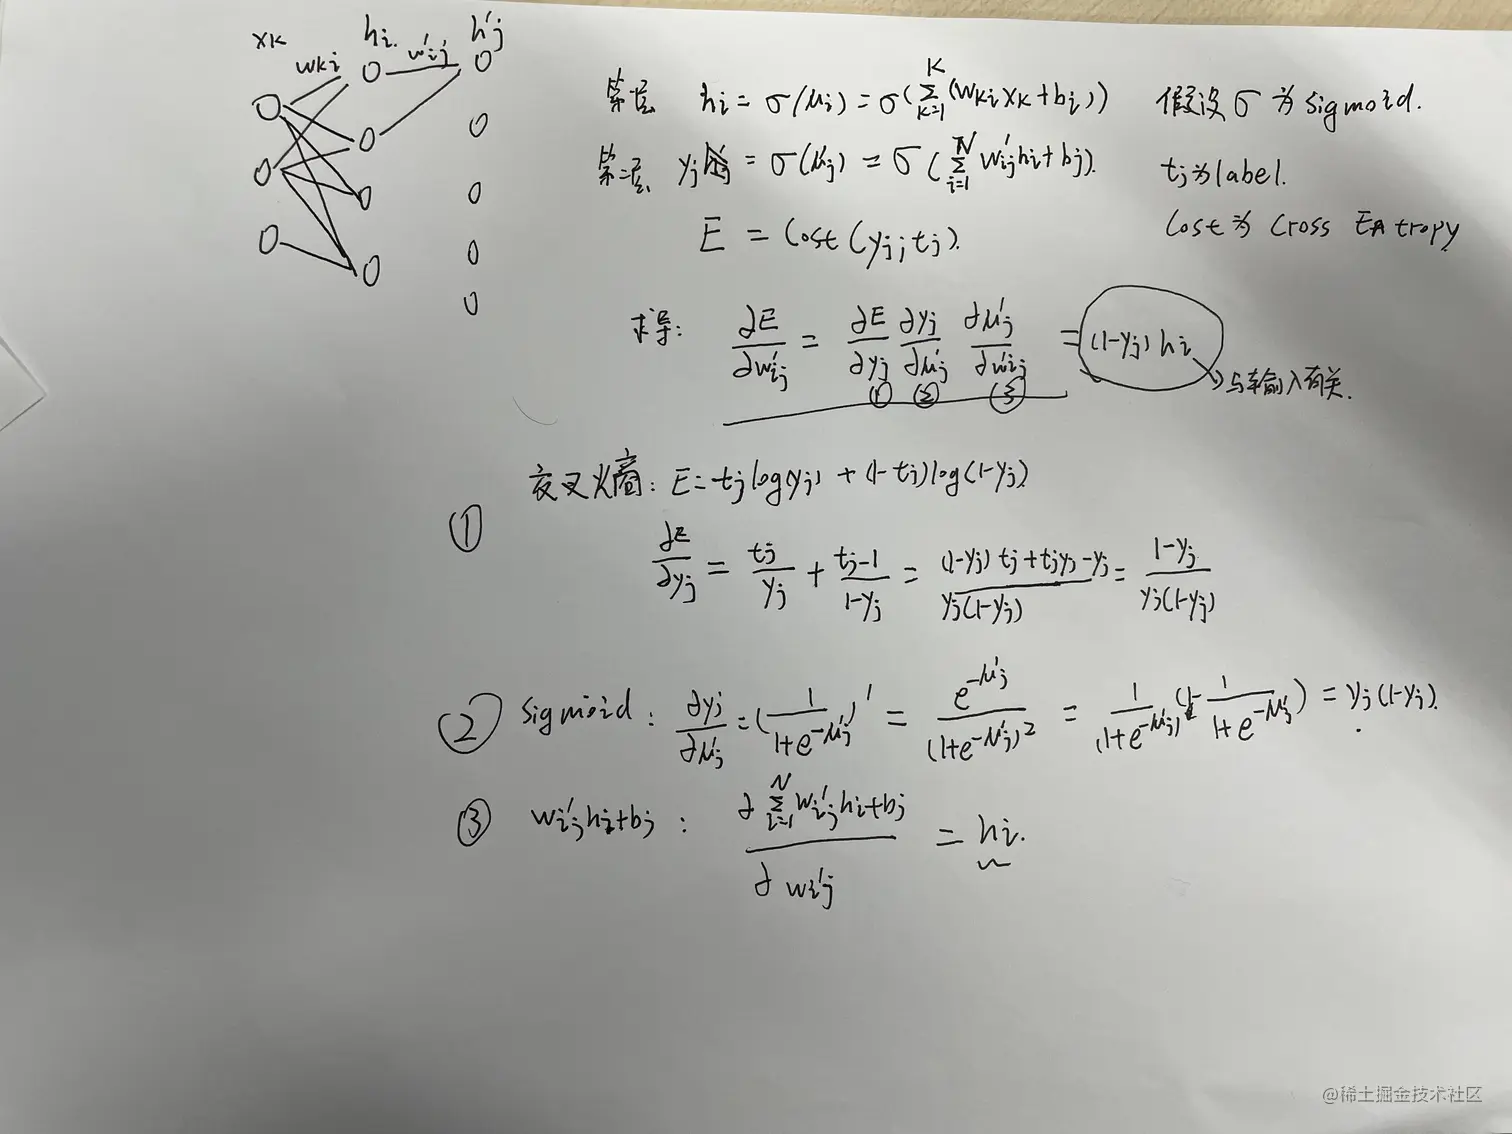 xk wki hi w'ij h'j
第一层 hi = σ(μi) = σ(∑_{k=1}^{K}(wki xk + bi)) 假设σ为sigmoid.
第二层 yj = σ(μ'j) = σ(∑_{i=1}^{N} w'ij hi + bj). tj为label.
E = Cost(yj; tj). Cost为 Cross Entropy
求导: ∂E/∂w'ij = ∂E/∂yj ∂yj/∂μ'j ∂μ'j/∂w'ij = (1-yj) hi
① ② ③ →与输入有关.
交叉熵: E = tj log(yj) + (1-tj) log(1-yj)
① ∂E/∂yj = tj/yj + (tj-1)/(1-yj) = ((1-yj) tj + tjyj - yj)/(yj(1-yj)) = (1-yj)/(yj(1-yj))
② Sigmoid: ∂yj/∂μ'j = (1/(1+e^{-μ'j}))' = e^{-μ'j}/(1+e^{-μ'j})^2 = 1/(1+e^{-μ'j}) (1 - 1/(1+e^{-μ'j})) = yj(1-yj).
③ w'ij hi + bj : ∂∑_{i=1}^{N} w'ij hi + bj / ∂w'ij = hi.
@稀土掘金技术社区